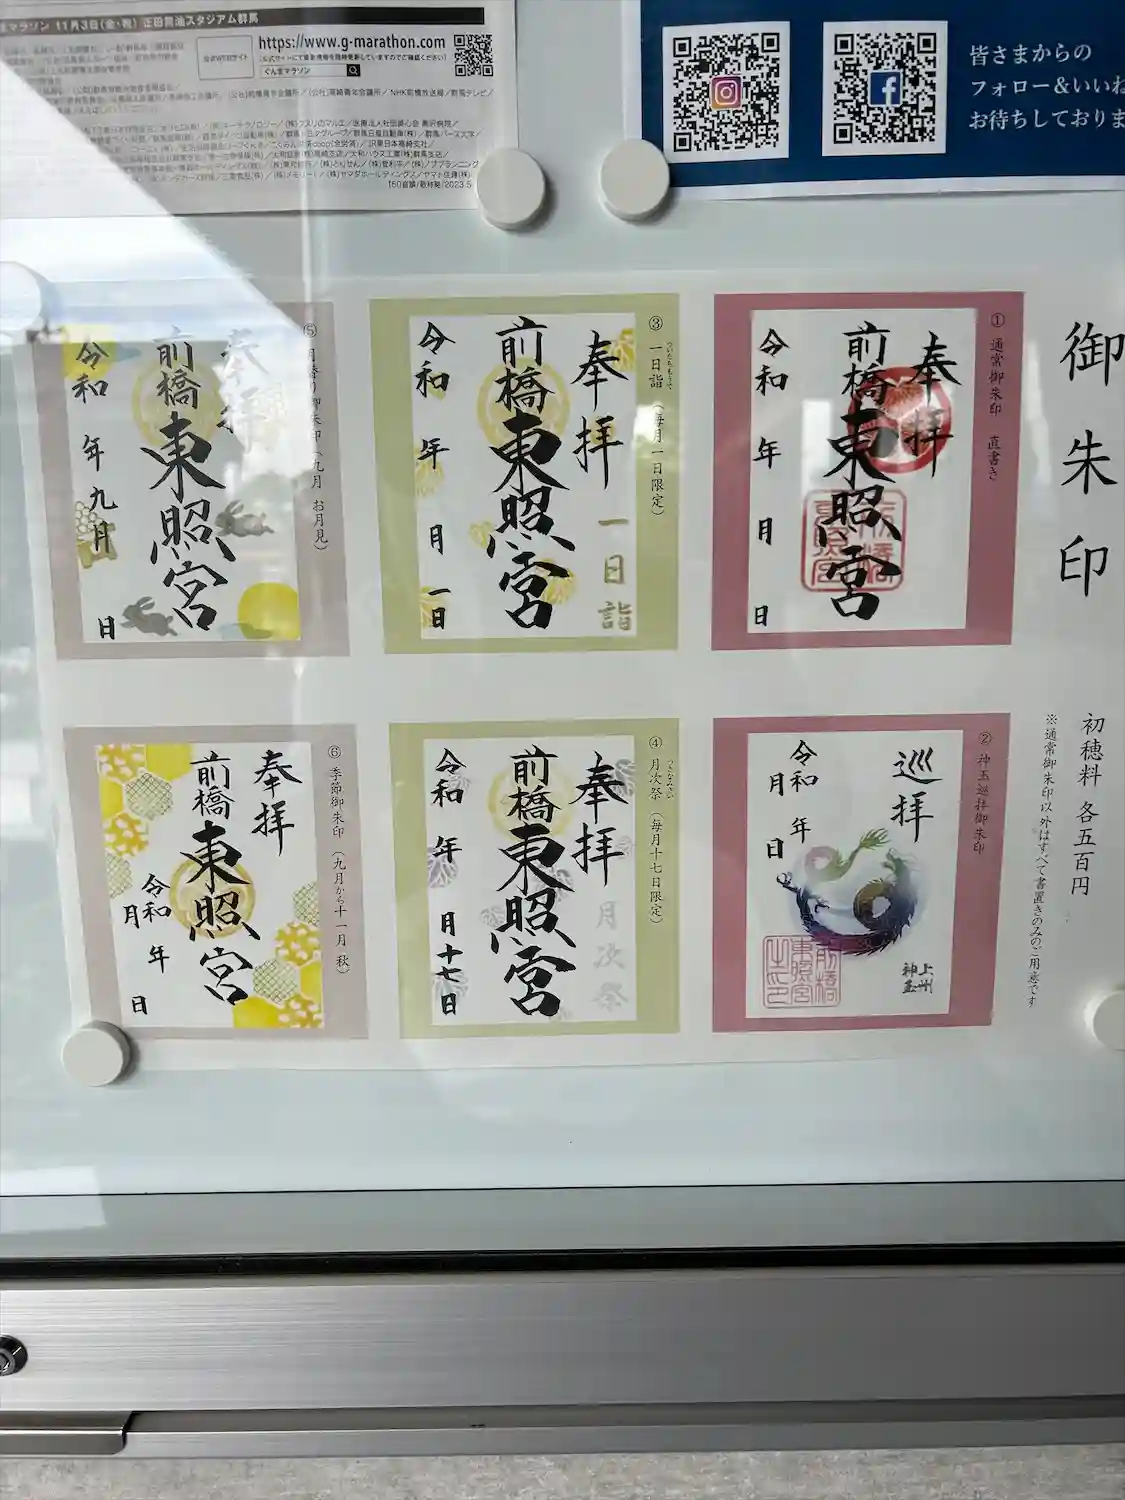 マラソン 11月3日(金・祝) 正田醤油スタジアム群馬
公式WEBサイト
https://www.g-marathon.com
(公式サイトにて最新情報を随時更新していますのでご確認ください)
ぐんまマラソン
150音順/敬称略/2023.5
皆さまからの
フォロー&いいね
お待ちしておりま
御朱印
初穂料 各五百円
※通常御朱印以外はすべて書置きのみのご用意です
① 通常御朱印 直書き
奉拝
前橋東照宮
令和 年 月 日
② 神玉巡拝御朱印
巡拝
令和 年
月 日
上州
神玉
前橋
東照宮
③ 一日詣 (毎月一日限定)
ついたちもうで
奉拝
一日詣
前橋東照宮
令和 年 月 一日
④ 月次祭 (毎月十七日限定)
つきなみさい
奉拝
月次祭
前橋東照宮
令和 年 月十七日
⑤ 月替り御朱印 (九月 お月見)
奉拝
前橋東照宮
令和 年 九月 日
⑥ 季節御朱印 (九月から十一月 秋)
奉拝
前橋東照宮
令和 年
月 日